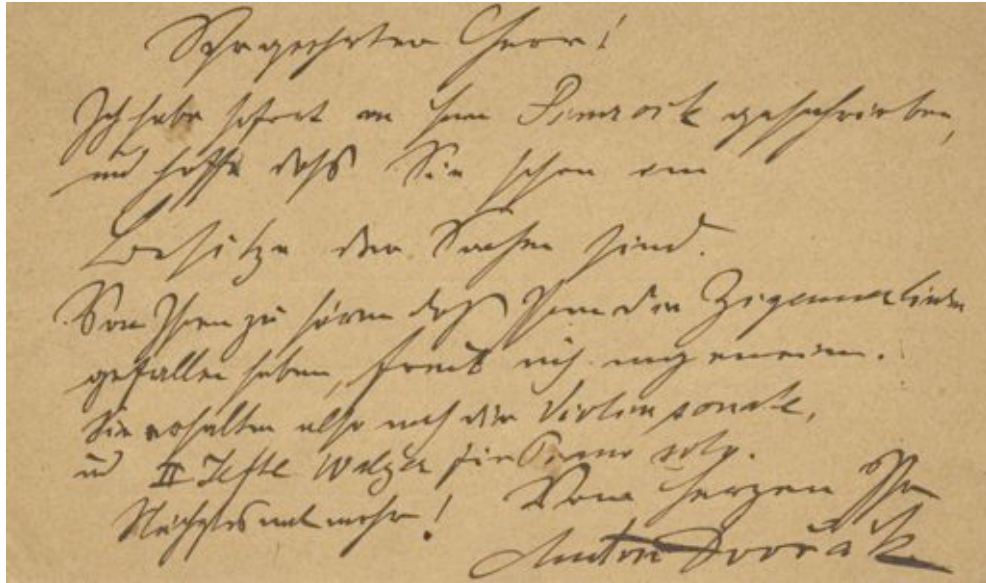 Sehr geehrter Herr!
Ich habe sofort an Herrn Simrock geschrieben,
und hoffe daß Sie schon im
Besitze der Sachen sind.
Von Ihnen zu hören daß Ihnen die Zigeunerlieder
gefallen haben, freut mich ungemein.
Sie erhalten also noch die Violinsonate,
und II Hefte Walzer für Piano solo.
Nächstes mal mehr! Vom Herzen Ihr
Antón Dvořák